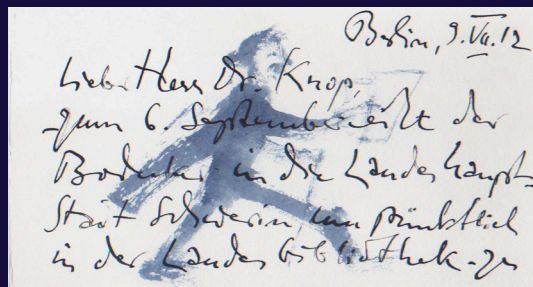 Berlin, 9. VII. 12
Lieber Herr Dr. Knop,
zum 6. September eilt der
in die Landeshaupt-
stadt Schwerin, um pünktlich
in der Landesbibliothek zu